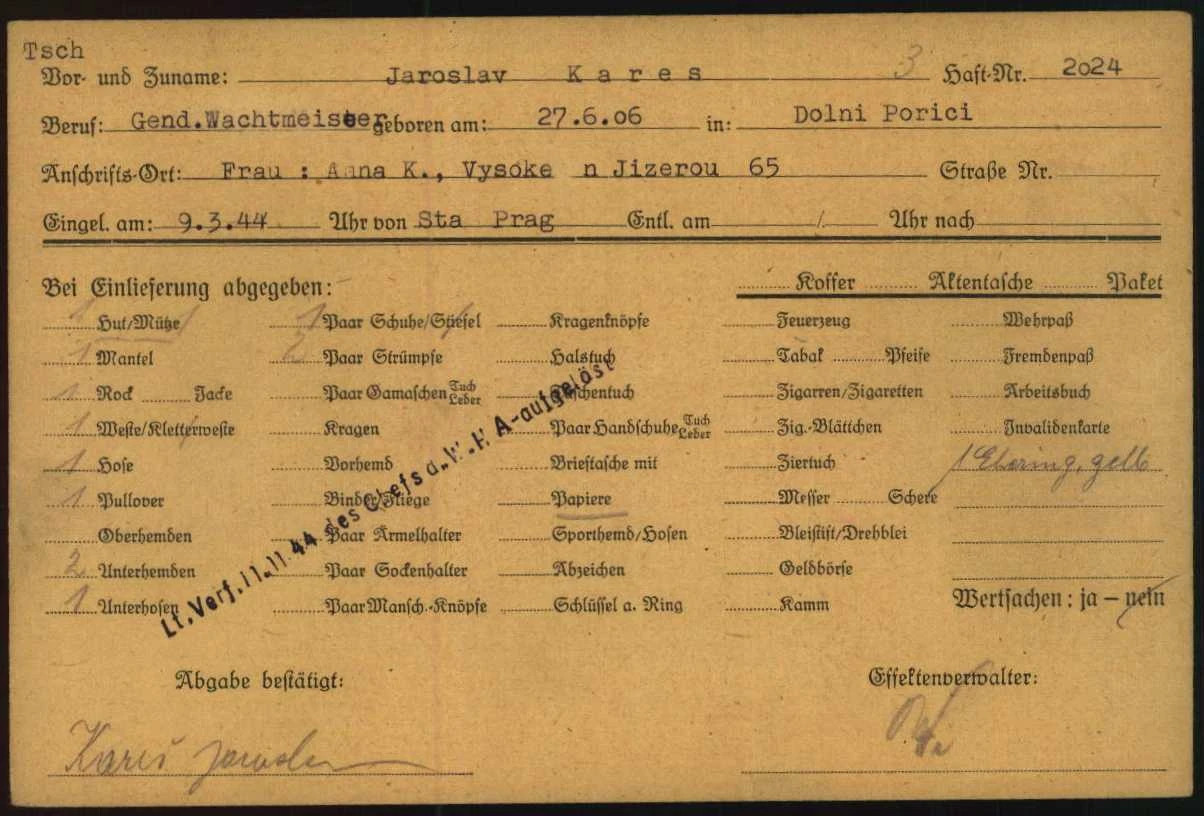 Tsch
Vor- und Zuname: Jaroslav Kares 3 Haft-Nr. 2024
Beruf: Gend.Wachtmeister geboren am: 27.6.06 in: Dolni Porici
Anschrifts-Ort: Frau : Anna K., Vysoke n Jizerou 65 Straße Nr.
Eingel. am: 9.3.44 Uhr von Sta Prag Entl. am / Uhr nach
Bei Einlieferung abgegeben: Koffer Aktentasche Paket
1 Hut/Mütze 1 Paar Schuhe/Stiefel Kragenknöpfe Feuerzeug Wehrpaß
1 Mantel 2 Paar Strümpfe Halstuch Tabak Pfeife Fremdenpaß
1 Rock Jacke Paar Gamaschen Tuch Leder Taschentuch Zigarren/Zigaretten Arbeitsbuch
1 Weste/Kletterweste Kragen Paar Handschuhe Tuch Leder Zig.-Blättchen Invalidenkarte
1 Hose Vorhemd Brieftasche mit Ziertuch 1 Ehering, gelb
1 Pullover Binder/Fliege Papiere Messer Schere
Oberhemden Paar Ärmelhalter Sporthemd/Hosen Bleistift/Drehblei
2 Unterhemden Paar Sockenhalter Abzeichen Geldbörse
1 Unterhosen Paar Mansch.-Knöpfe Schlüssel a. Ring Kamm Wertsachen: ja – nein
Lt. Verf. 11.11.44 des Chefs d. W.V.H A-aufgelöst
Abgabe bestätigt: Effektenverwalter:
Kareš Jaroslav